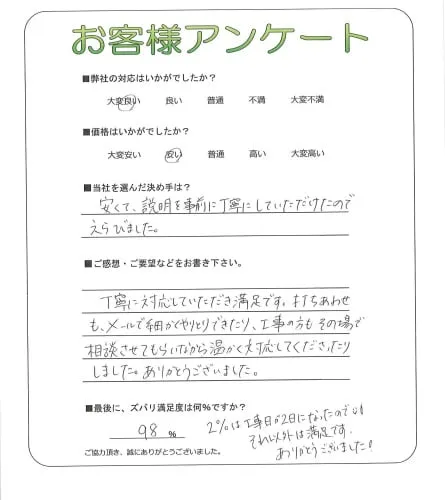 お客様アンケート
■弊社の対応はいかがでしたか?
大変良い 良い 普通 不満 大変不満
■価格はいかがでしたか?
大変安い 安い 普通 高い 大変高い
■当社を選んだ決め手は?
安くて、説明を事前に丁寧にしていただけたので
えらびました。
■ご感想・ご要望などをお書き下さい。
丁寧に対応していただき満足です。打ちあわせ
も、メールで細かくやりとりできたり、工事の方もその場で
相談させてもらいながら温かく対応してくださったり
しました。ありがとうございました。
■最後に、ズバリ満足度は何%ですか?
98 %
2%は工事日が2日になったので
それ以外は満足です。
ありがとうございました!
ご協力頂き、誠にありがとうございました。